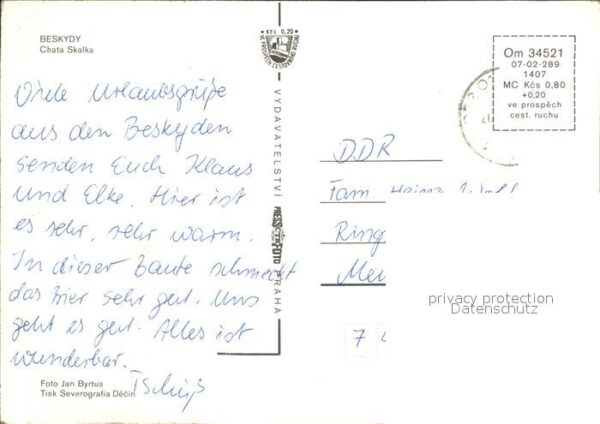 BESKYDY
Chata Skalka
Kčs 0,20
VE PROSPĚCH CESTOVNÍHO RUCHU
Om 34521
07-02-289
1407
MC Kčs 0,80
+0,20
ve prospěch
cest. ruchu
Viele Urlaubsgrüße
aus den Beskyden
senden Euch Klaus
und Elke. Hier ist
es sehr, sehr warm.
In dieser Baute schmeckt
das Bier sehr gut. Uns
geht es gut. Alles ist
wunderbar.
Tschüß
VYDAVATELSTVÍ
PRESSFOTO
PRAHA
DDR
Fam.
Ring
7
privacy protection
Datenschutz
Foto Jan Byrtus
Tisk Severografia Děčín